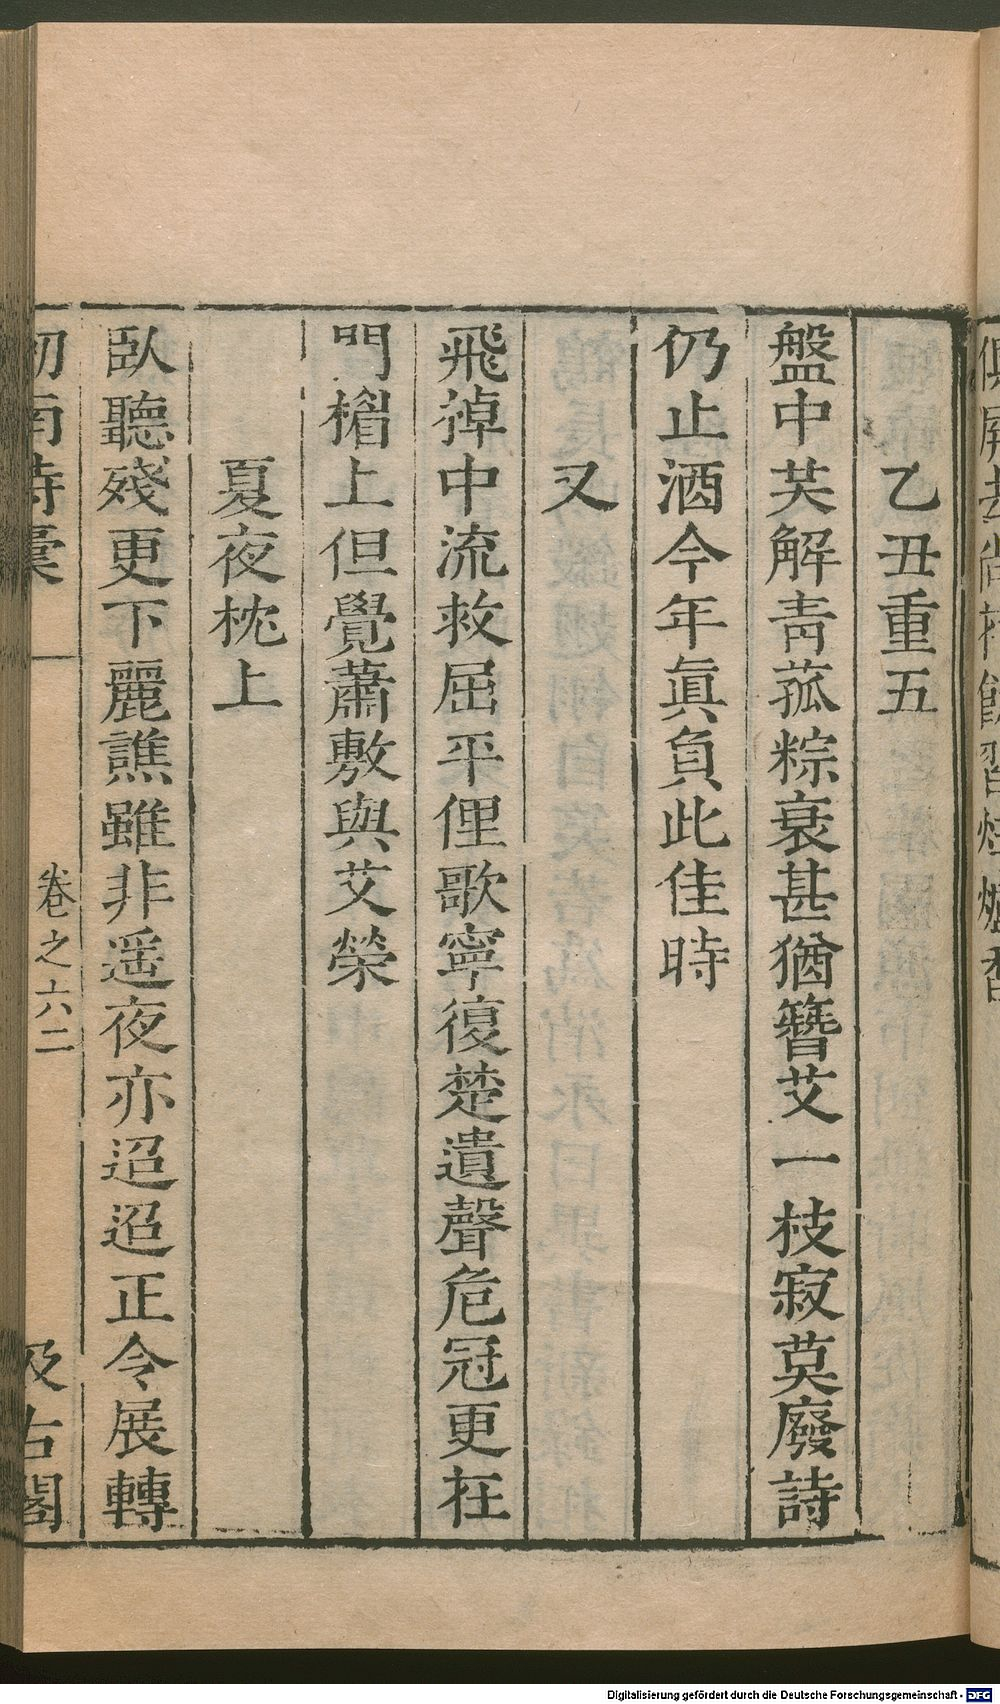 乙丑重五
盤中共解靑菰粽衰甚猶簪艾一枝寂莫廢詩
仍止酒今年眞負此佳時
又
飛棹中流救屈平俚歌寧復楚遺聲危冠更在
門楣上但覺蕭敷與艾榮
夏夜枕上
臥聽殘更下麗譙雖非遥夜亦迢迢正令展轉
南詩稾
卷之六二
古閣
Digitalisierung gefördert durch die Deutsche Forschungsgemeinschaft - DFG